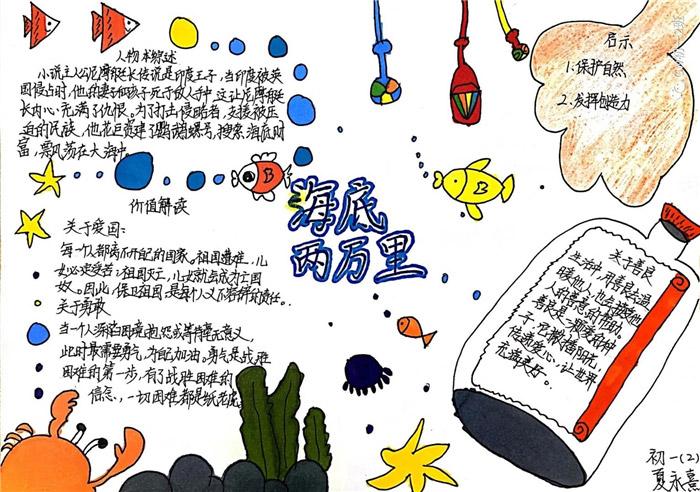 人物术综述
小说主人公尼摩艇长传说是印度王子,当印度被英
国侵占时,他的妻子和孩子死于敌人手中,这让尼摩艇
长内心充满了仇恨。为了打击侵略者,支援被压
迫的民族,他花巨资建了鹦鹉螺号,搜索海底财
富,漂风荡在大海中。
价值解读
关于爱国:
每一个人都离不开自己的国家。祖国遭难,儿
女必定受苦;祖国灭亡,儿女就会成为亡国
奴。因此,保卫祖国,是每个人义不容辞的责任。
关于勇敢
当一个人深陷困境,抱怨或等待毫无意义,
此时最需要勇气,为自己加油。勇气是战胜
困难的第一步,有了战胜困难的
信念,一切困难都是纸老虎。
海底
两万里
启示
1.保护自然
2.发挥创造力
关于善良
生活中,用善良去温
暖他人,也会接收他
人的善意的帮助。
善良是一颗爱的种
子,它散播阳光,
传递爱心,让世界
充满美好。
初一(2)
夏永熹
B
B